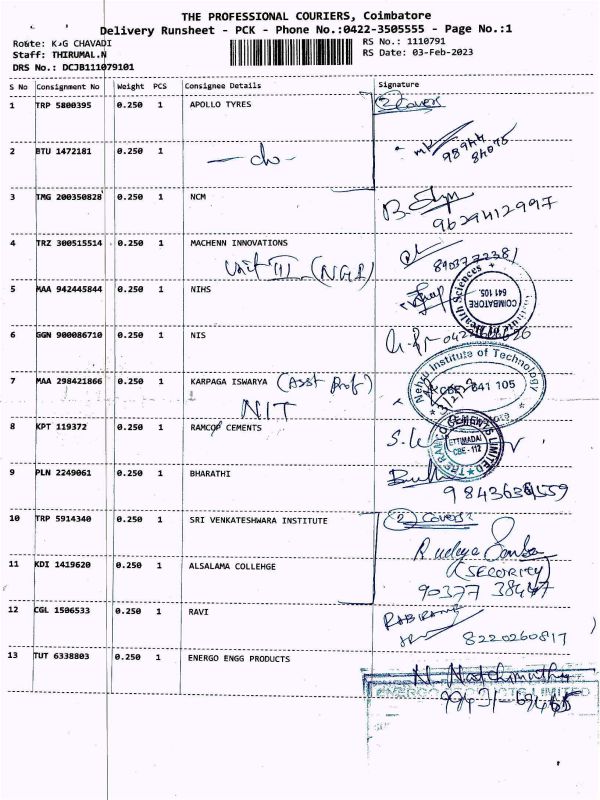 THE PROFESSIONAL COURIERS, Coimbatore
Delivery Runsheet - PCK - Phone No.:0422-3505555 - Page No.:1
Route: K.G CHAVADI
RS No.: 1110791
Staff: THIRUMAL.N
RS Date: 03-Feb-2023
DRS No.: DCJB111079101
S No Consignment No Weight PCS Consignee Details Signature
1 TRP 5800395 0.250 1 APOLLO TYRES 2 Covers
2 BTU 1472181 0.250 1 - do -
98944
84075
3 TMG 200350828 0.250 1 NCM
9629412997
4 TRZ 300515514 0.250 1 MACHENN INNOVATIONS
Unit III (NGP) 8903772381
5 MAA 942445844 0.250 1 NIHS
Health Sciences
COIMBATORE
641 105.
6 GGN 900086710 0.250 1 NIS
Nehru Institute of Technology
7 MAA 298421866 0.250 1 KARPAGA ISWARYA (Asst Prof)
CBE 641 105
3/2/23
NIT
8 KPT 119372 0.250 1 RAMCOP CEMENTS
THE RAMCO CEMENTS LIMITED
ETTIMADAI
CBE - 112
9 PLN 2249061 0.250 1 BHARATHI
10 TRP 5914340 0.250 1 SRI VENKATESHWARA INSTITUTE 2 Covers
11 KDI 1419620 0.250 1 ALSALAMA COLLEHGE
(SECURITY)
90377 38447
12 CGL 1506533 0.250 1 RAVI
8220260817
13 TUT 6338803 0.250 1 ENERGO ENGG PRODUCTS
LIMITED